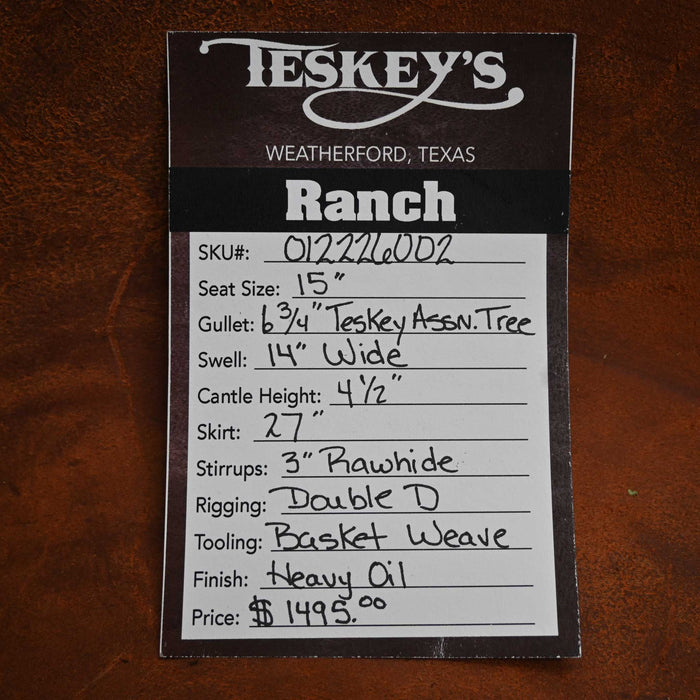 TESKEY'S
WEATHERFORD, TEXAS
Ranch
SKU#: 012226002
Seat Size: 15"
Gullet: 6 3/4" Teskey Assn. Tree
Swell: 14" Wide
Cantle Height: 4 1/2"
Skirt: 27"
Stirrups: 3" Rawhide
Rigging: Double D
Tooling: Basket Weave
Finish: Heavy Oil
Price: $ 1495.00